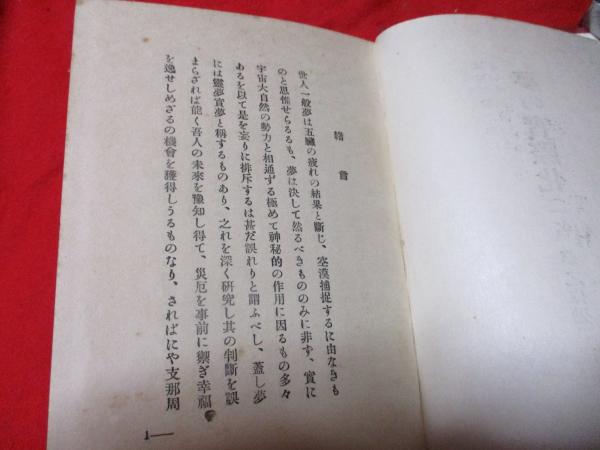 緒言
世人一般夢は五臟の疲れの結果と斷じ、空漠捕捉するに由なきも
のと思惟せらるるも、夢は決して然るべきもののみに非ず、實に
宇宙大自然の勢力と相通ずる極めて神秘的の作用に因るもの多々
あるを以て是を妄りに排斥するは甚だ誤れりと謂ふべし、蓋し夢
には靈夢實夢と稱するものあり、之れを深く研究し其の判斷を誤
まらざれば能く吾人の未來を豫知し得て、災厄を事前に禦ぎ幸福
を逸せしめざるの機會を獲得しうるものなり、さればにや支那周
1